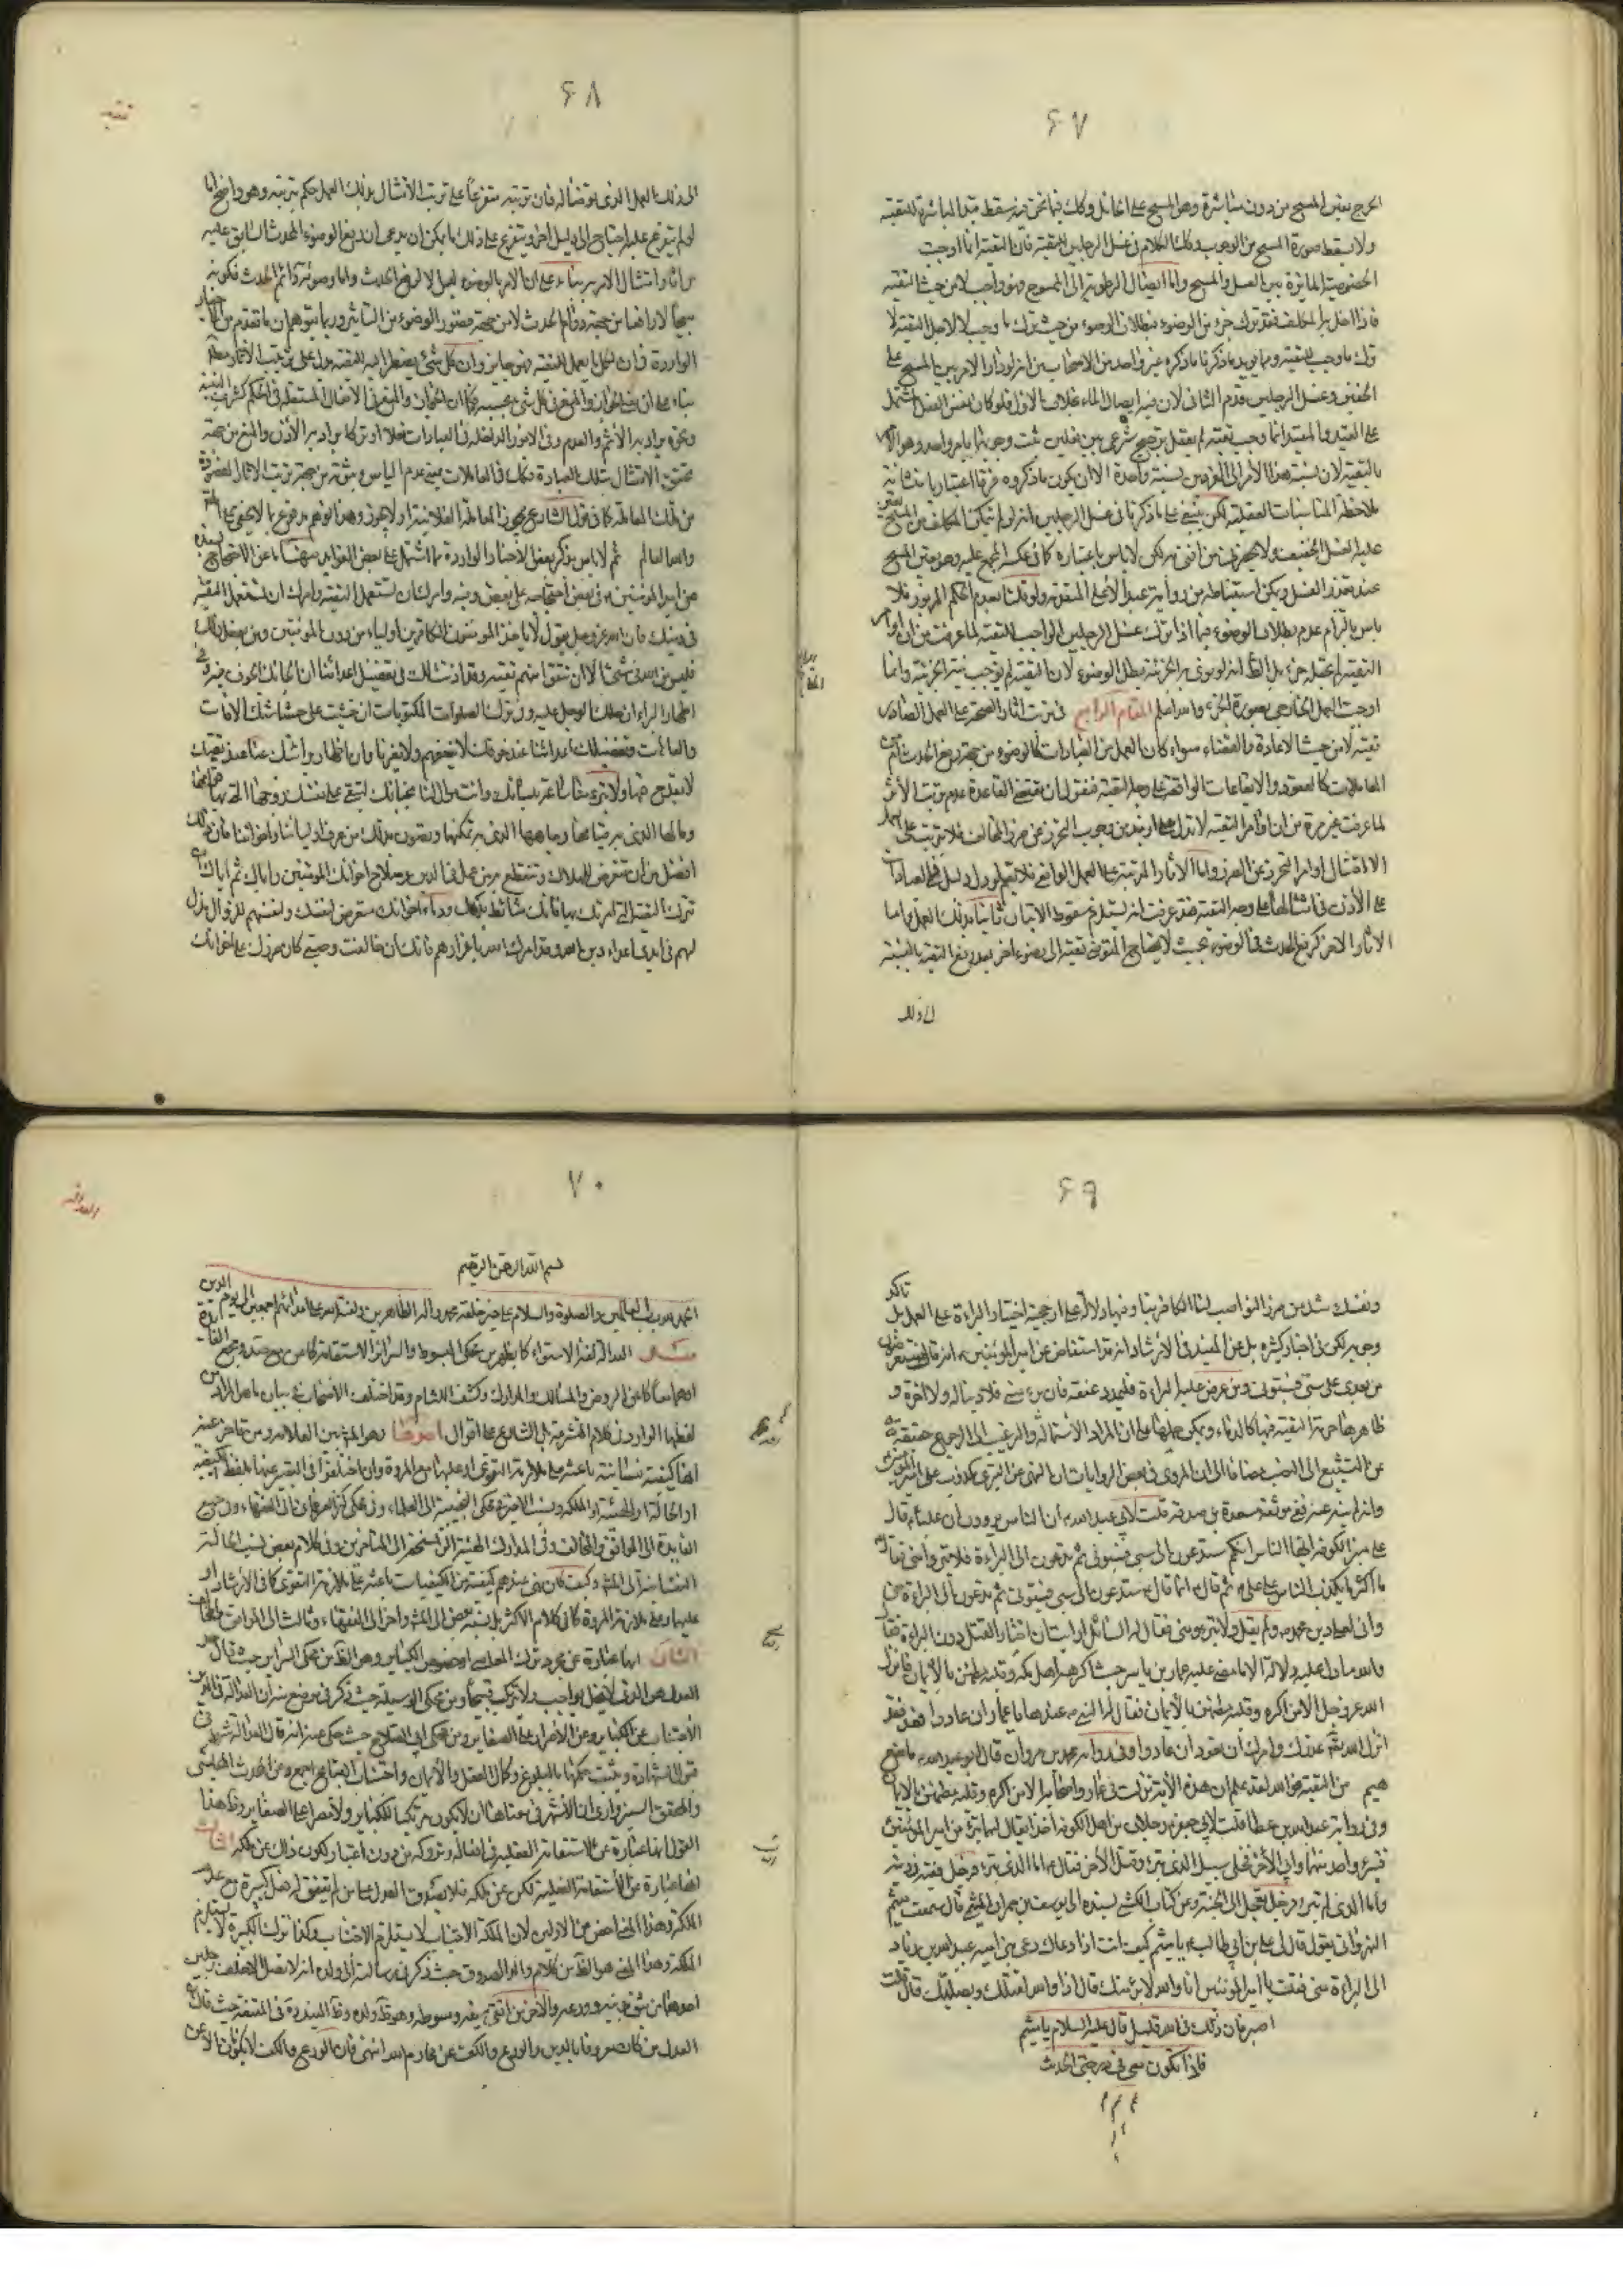 ۶۷
الحرج بعين المسح من دون مباشرة وهو المسح على الحائل وكك فيما نحن فيه سقط قيد المباشرة للتقية
ولا يسقط صورة المسح من الوجوب وكك الكلام في غسل الرجلين للتقية فان التقية انما اوجبت
الخصوصية المائزة بين الغسل والمسح واما ايصال الرطوبة الى الممسوح فهو واجب لا من حيث التقية
فاذا اخل به المكلف فقد ترك جزء من الوضوء فبطلان الوضوء من حيث ترك ما وجب لا لاجل التقية لا
ترك ما وجب للتقية ومما يؤيد ما ذكرنا ما ذكره غير واحد من الاصحاب من انه لو دار الامر بين المسح على
الخفين وغسل الرجلين قدم الثاني لان فيه ايصال الماء بخلاف الاول فلو كان نفس الفعل المشتمل
على القيد والمقيد انما وجب تقية لم يعقل ترجيح شرعي بين فعلين ثبت وجوبهما بامر واحد وهو الامر
بالتقية لان نسبة هذا الامر الى الفردين نسبة واحدة الا ان يكون ما ذكروه فرقا اعتباريا منشائه
ملاحظة المناسبات العقلية لكن يبتني على ما ذكرنا في غسل الرجلين انه لو لم يتمكن المكلف من المسح تعين
عليه الغسل الخفيف ولا يحضرني من افتى به لكن لا باس باعتباره كما في عكسه المجمع عليه وهو تعين المسح
عند تعذر الغسل ويمكن استنباطه من رواية عبد الاعلى المتقدمة ولو قلنا بعدم الحكم المزبور فلا
باس بالتزام عدم بطلان الوضوء فيما اذا ترك غسل الرجلين الواجب للتقية لما عرفت من ان اوامر
التقية لم تجعله جزء بل الظ انه لو نوى به الجزئية بطل الوضوء لان التقية لم توجب نية الجزئية وانما
اوجبت العمل الخارجي بصورة الجزء والله العالم المقام الرابع في ترتب اثار الصحة على العمل الصادر
تقية لا من حيث الاعادة والقضاء سواء كان العمل من العبادات كالوضوء من جهة رفع الحدث ام من
المعاملات كالعقود والايقاعات الواقعة على وجه التقية فنقول ان مقتضى القاعدة عدم ترتب الاثر
لما عرفت غير مرة من ان اوامر التقية لا تدل على ازيد من وجوب التحرز عن ضرر المخالف فلا يترتب على العمل
الا امتثال اوامر التحرز عن الضرر واما الاثار المترتبة على العمل الواقعي فلا نعم لو دل دليل في العبادات
على الاذن في امتثالها على وجه التقية فقد عرفت انه يستلزم سقوط الاتيان ثانيا بذلك العمل واما
الاثار الاخر كرفع الحدث في الوضوء بحيث لا يحتاج المتوضي تقية الى وضوء اخر بعد رفع التقية بالنسبة
الى ذلك
۶۸
تقيه
الى ذلك العمل الذي توضأ له فان ترتبه متفرعا على ترتب الامتثال بذلك العمل حكم بترتبه وهو واضح اما
لو لم يتفرع عليه احتاج الى دليل اخر ويتفرع على ذلك ما يمكن ان يدعى ان رفع الوضوء للحدث السابق عليه
من اثار امتثال الامر به بناء على ان الامر بالوضوء ليس الا لرفع الحدث واما وضوء دائم الحدث فكونه
مبيحا لا رافعا من جهة دوام الحدث لا من جهة قصور الوضوء عن التأثير وربما يتوهم ان ما تقدم من الاخبار
الواردة في ان كل ما يعمل للتقية فهو جايز وان كل شئ يضطر اليه للتقية يدل على ترتيب الاثار مطلقا
بناء على ان معنى الجواز والمنع في كل شئ بحسبه فكما ان الجواز والمنع في الافعال المستقلة في الحكم كشرب النبيذ
ونحوه يراد به الاثم والعدم وفي الامور الداخلة في العبادات فعلا او تركا يراد به الاذن والمنع من جهة
تحقق الامتثال بتلك العبادة فكك في المعاملات بمعنى عدم الباس وثبوته من جهة ترتب الاثار المقصودة
من تلك المعاملة كما في قول الشارع يجوز المعاملة الفلانية او لا يجوز وهذا توهم مدفوع بما لا يخفى على المتأمل
والله العالم ثم لا باس بذكر بعض الاخبار الواردة مما اشتمل على بعض الفوايد منها ما عن الاحتجاج بسنده
عن امير المؤمنين ع في بعض احتجاجه على بعض وفيه وامرك ان تستعمل التقية وامرك ان تستعمل التقية
في دينك فان الله عز وجل يقول لا يتخذ المؤمنون الكافرين اولياء من دون المؤمنين ومن يفعل ذلك
فليس من الله في شئ الا ان تتقوا منهم تقية وقد اذنت لك في تفضيل اعدائنا ان الجاءك الخوف اليه وفي
اظهار البراءة ان حملك الوجل عليه وفي ترك الصلوات المكتوبات ان خشيت على حشاشتك الافات
والعاهات وتفضيلك اعدائنا عند خوفك لا ينفعهم ولا يضرنا وان اظهارك برائتك عنا عند تقيتك
لا يقدح فينا ولا تبرء منا ساعة بلسانك وانت موال لنا بجنانك لتبقى على نفسك روحها التي بها قوامها
ومالها الذي به قيامها وجاهها الذي به تمكنها وتصون بذلك من عرف اوليائنا واخواننا فان ذلك
افضل من ان تتعرض للهلاك وتنقطع به من عمل في الدين وصلاح اخوانك المؤمنين واياك ثم اياك ان
تترك التقية التي امرتك بها فانك شائط بدمك ودماء اخوانك متعرض لنفسك ولنفسهم للزوال مذل
لهم في ايدي اعداء دين الله وقد امرك الله باعزازهم فانك ان خالفت وصيتي كان ضررك على اخوانك
۶۹
ونفسك اشد من ضرر الناصب لنا الكافر بنا وفيها دلالة على ارجحية اختيار البراءة على العمل بل تاكد
وجوبه لكن في اخبار كثيرة بل عن المفيد في الارشاد انه قد استفاض عن امير المؤمنين ع انه قال ستعرضون
من بعدي على سبي فسبوني ومن عرض عليه البراءة فليمدد عنقه فان برء مني فلا دنيا له ولا اخرة و
ظاهرها حرمة التقية فيها كالدماء ويمكن حملها على ان المراد الاستمالة والترغيب الى الرجوع حقيقة
عن التشيع الى النصب مضافا الى ان المروي في بعض الروايات ان النهي عن التبري مكذوب على امير المؤمنين
وانه لم ينه عنه ففي موثقة مسعدة بن صدقة قلت لابي عبد الله ع ان الناس يروون ان عليا ع قال
على منبر الكوفة ايها الناس انكم ستدعون الى سبي فسبوني ثم تدعون الى البراءة فلا تبرؤا مني فقال ع
ما اكثر ما يكذب الناس على علي ع ثم قال انما قال ستدعون الى سبي فسبوني ثم تدعون الى البراءة مني
واني لعلى دين محمد ص ولم يقل ولا تبرؤا مني فقال له السائل ارايت ان اختار القتل دون البراءة فقال
والله ما ذاك عليه ولا له الا ما مضى عليه عمار بن ياسر حيث اكرهه اهل مكة وقلبه مطمئن بالايمان فانزل
الله عز وجل الا من اكره وقلبه مطمئن بالايمان فقال له النبي ص عندها يا عمار ان عادوا فعد فقد
انزل الله عز وجل عذرك وامرك ان تعود ان عادوا وفي رواية محمد بن مروان قال ابو عبد الله ع ما منع
ميثم من التقية فوالله لقد علم ان هذه الاية نزلت في عمار واصحابه الا من اكره وقلبه مطمئن بالايمان
وفي رواية عبد الله بن عطا قلت لابي جعفر ع رجلان من اهل الكوفة اخذا فقيل لهما ابرئا من امير المؤمنين
فبرء واحد منهما وابى الاخر فخلي سبيل الذي تبرء وقتل الاخر فقال ع اما الذي تبرء فرجل فقيه في دينه
واما الذي لم يتبرء فرجل تعجل الى الجنة وعن كتاب الكشي بسنده الى يوسف بن عمران الميثمي قال سمعت ميثم
النهرواني يقول قال لي علي بن ابي طالب ع يا ميثم كيف انت اذا دعاك دعي بني امية عبيد الله بن زياد
الى البراءة مني فقلت يا امير المؤمنين انا والله لا ابرء منك قال اذا والله يقتلك ويصلبك قال قلت
اصبر فان ذلك في الله قليل قال عليه السلام يا ميثم
فاذا تكون معي في درجتي الحديث
۷۰
العدالة
بسم الله الرحمن الرحيم
الحمد لله رب العالمين والصلوة والسلام على خير خلقه محمد واله الطاهرين ولعنة الله على اعدائهم اجمعين الى يوم الدين
العدالة لغة الاستواء كما يظهر من محكي المبسوط والسرائر او الاستقامة كما عن مجمع الفائدة
او هما معا كما عن الروض والمسالك والمدارك وكشف اللثام وقد اختلف الاصحاب في بيان ما هو المراد من
لفظها الوارد في كلام المتشرعة بل الشارع على اقوال احدها وهو المشهور بين العلامة ومن تاخر عنه
انها كيفية نفسانية باعثة على ملازمة التقوى او عليها مع المروة وان اختلفوا في التعبير عنها بلفظ الكيفية
او الحالة او الهيئة او الملكة ونسب الاخير في محكي النجيبية الى العلماء وفي محكي كنز العرفان الى الفقهاء وفي مجمع
الفايدة الى الموافق والمخالف وفي المدارك الهيئة الراسخة الى المتاخرين وفي كلام بعض نسبة الحالة
النفسانية الى المشهور وكيف كان فهي عندهم كيفية من الكيفيات باعثة على ملازمة التقوى كما في الارشاد او
عليها وعلى ملازمة المروة كما في كلام الاكثر بل نسبه بعض الى المشهور واخر الى الفقهاء وثالث الى الموافق والمخالف
الثاني انها عبارة عن مجرد ترك المعاصي او خصوص الكبائر وهو الظ من محكي السرائر حيث قال
العدل هو الذي لا يخل بواجب ولا يرتكب قبيحا وعن محكي الوسيلة حيث ذكر في موضع منه ان العدالة في الدين
الاجتناب عن الكبائر وعن الاصرار على الصغاير ومن محكي ابي الصلاح حيث حكى عنه انه قال العدالة شرط في
قبول الشهادة ويثبت حكمها بالبلوغ وكمال العقل والايمان واجتناب القبايح اجمع وعن المحدث المجلسي
والمحقق السبزواري ان الاشهر في معناها ان لا يكون مرتكبا للكباير ولا مصرا على الصغاير وظ هذا
القول انها عبارة عن الاستقامة الفعلية في افعاله وتروكه من دون اعتبار لكون ذلك عن ملكة الثالث
انها عبارة عن الاستقامة الفعلية لكن عن ملكة فلا يصدق العدل على من لم يتفق له فعل كبيرة مع عدم
الملكة وهذا المعنى اخص من الاولين لان ملكة الاجتناب لا يستلزم الاجتناب وكذا ترك الكبيرة لا يستلزم
الملكة وهذا المعنى هو الظ من كلام والد الصدوق حيث ذكر في رسالته الى ولده انه لا تصل الا خلف رجلين
احدهما من تثق بدينه وورعه والاخر من تتقي سيفه وسوطه وهو ظ ولده وظ المفيد في المقنعة حيث قال ان
العدل من كان معروفا بالدين والورع والكف عن محارم الله انتهى فان الورع والكف لا يكونان الا عن